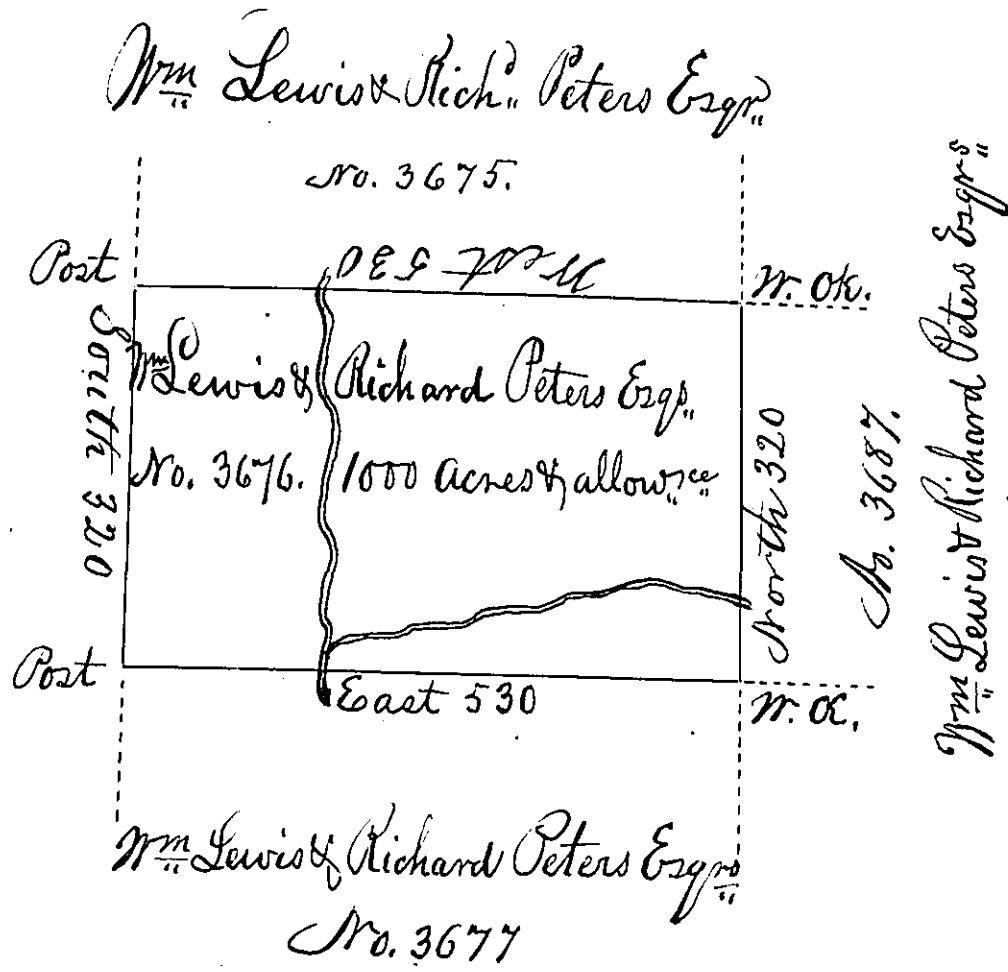 Wm Lewis & Richd. Peters Esqr.
No. 3675.
Post
West 530
W. OK.
South 320
Wm Lewis & Richard Peters Esqs.
No. 3676. 1000 acres & allow.ce
North 320
No. 3687.
Wm Lewis & Richard Peters Esqrs.
Post
East 530
W. OK.
Wm Lewis & Richard Peters Esqrs
No. 3677